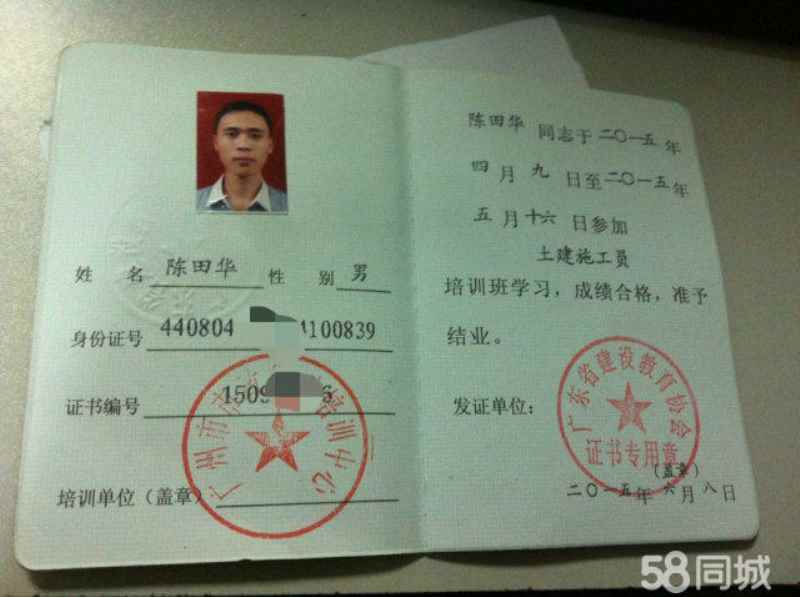 姓 名 陈田华 性 别 男
身份证号 440804 4100839
证书编号 1509 6
培训单位（盖章）
广州市 培训中心
陈田华 同志于 二〇一五年
四 月 九 日至二〇一五年
五 月十六 日参加
土建施工员
培训班学习，成绩合格，准予
结业。
发证单位：
广东省建设教育协会
证书专用章
（盖章）
二〇一五年 六 月 八 日
58同城